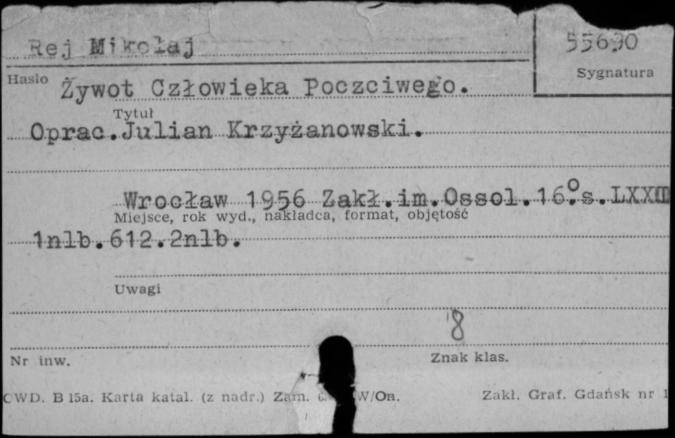 Rej Mikołaj 55690
Hasło Sygnatura
Żywot Człowieka Poczciwego.
Tytuł
Oprac. Julian Krzyżanowski.
Wrocław 1956 Zakł.im.Ossol.16°.s.
Miejsce, rok wyd., nakładca, format, objętość
1nlb.612.2nlb.
Uwagi
8
Nr inw. Znak klas.
CWD. B 15a. Karta katal. (z nadr.) Zam. W/On. Zakł. Graf. Gdańsk nr